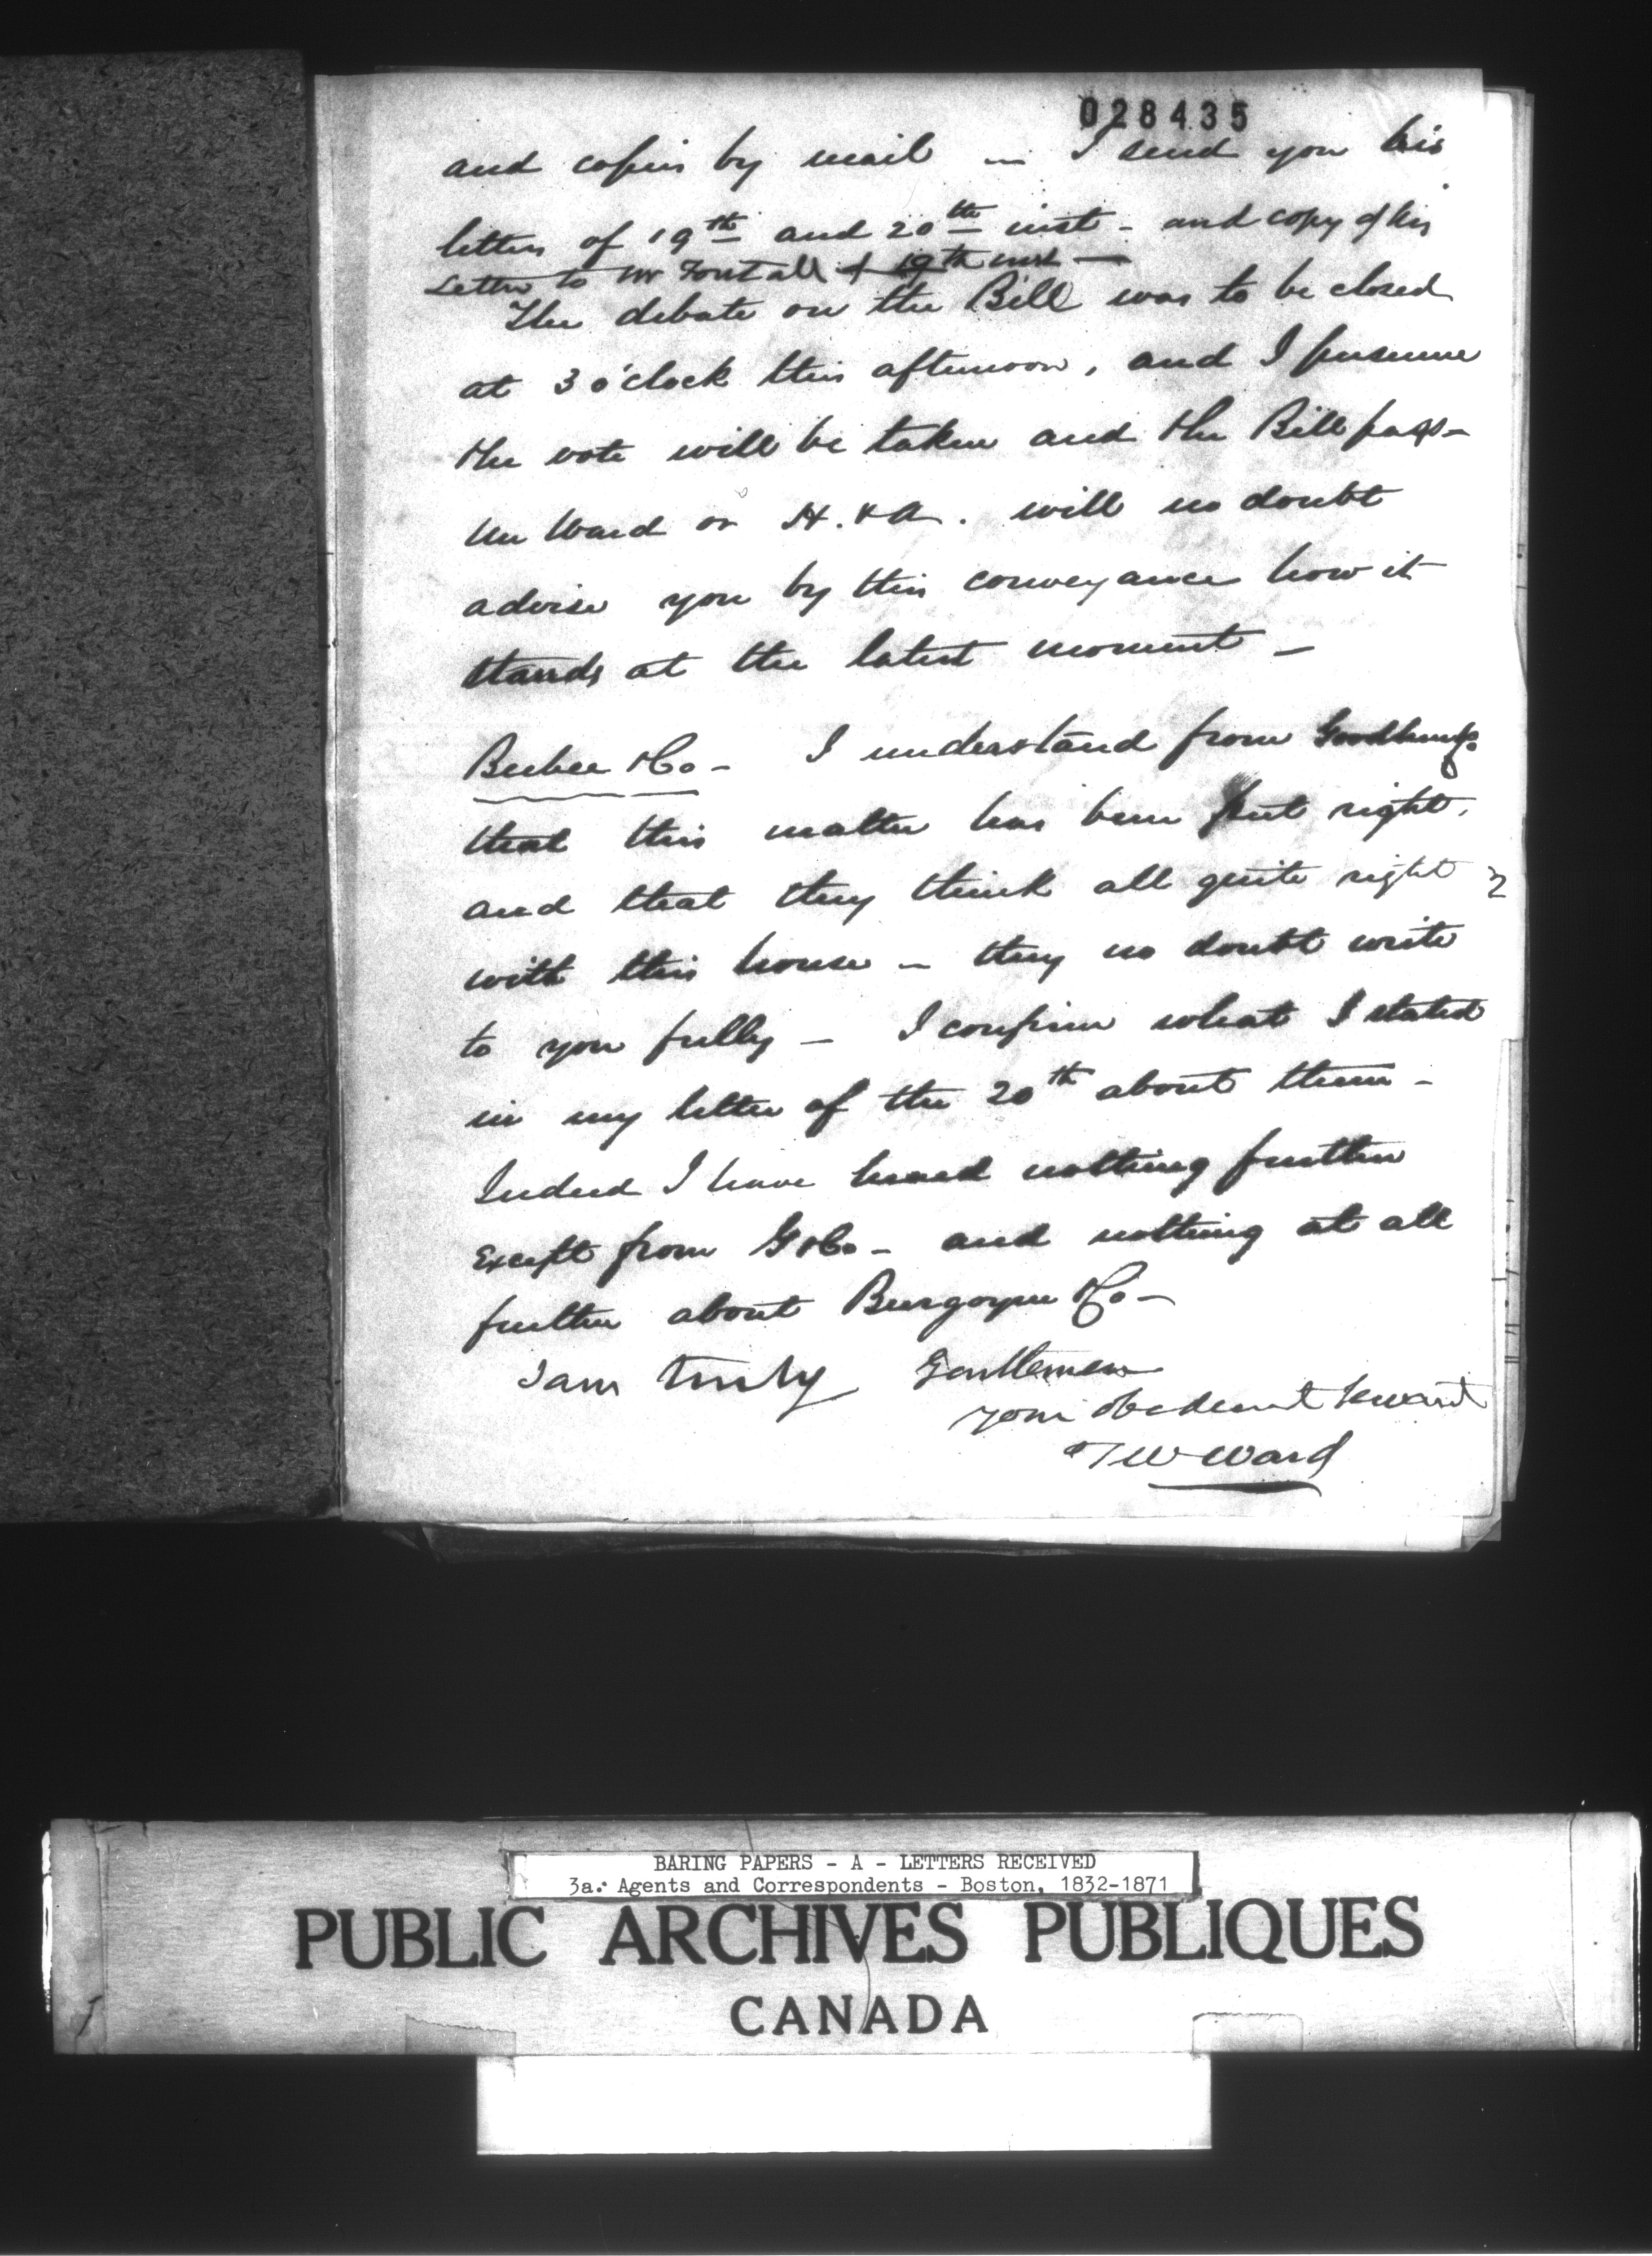 028435
and copies by mail — I send you his
letters of 19th and 20th inst - and copy of his
Letter to Mr 19th inst —
The debate on the Bill was to be closed
at 3 o'clock this afternoon, and I presume
the vote will be taken and the Bill pass -
Mr Ward or H. & A. will no doubt
advise you by this conveyance how it
stands at the latest moment -
Beebee & Co - I understand from
that this matter has been put right,
and that they think all quite right
with this house - they no doubt write
to you fully - I confirm what I stated
in my letter of the 20th about them -
Indeed I have heard nothing further
except from G & Co - and nothing at all
further about Burgoyne & Co -
I am truly Gentlemen
your obedient servant
T W Ward
BARING PAPERS - A - LETTERS RECEIVED
3a. Agents and Correspondents - Boston, 1832-1871
PUBLIC ARCHIVES PUBLIQUES
CANADA